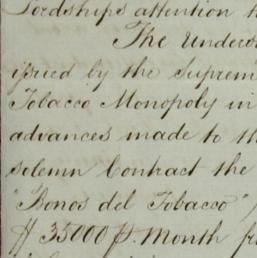 Lordships attention
The Unders
issued by the Suprem
Tobacco Monopoly in
advances made to th
solemn Contract the
"Bonos del Tobacco"
$ 35000 p. Month fr